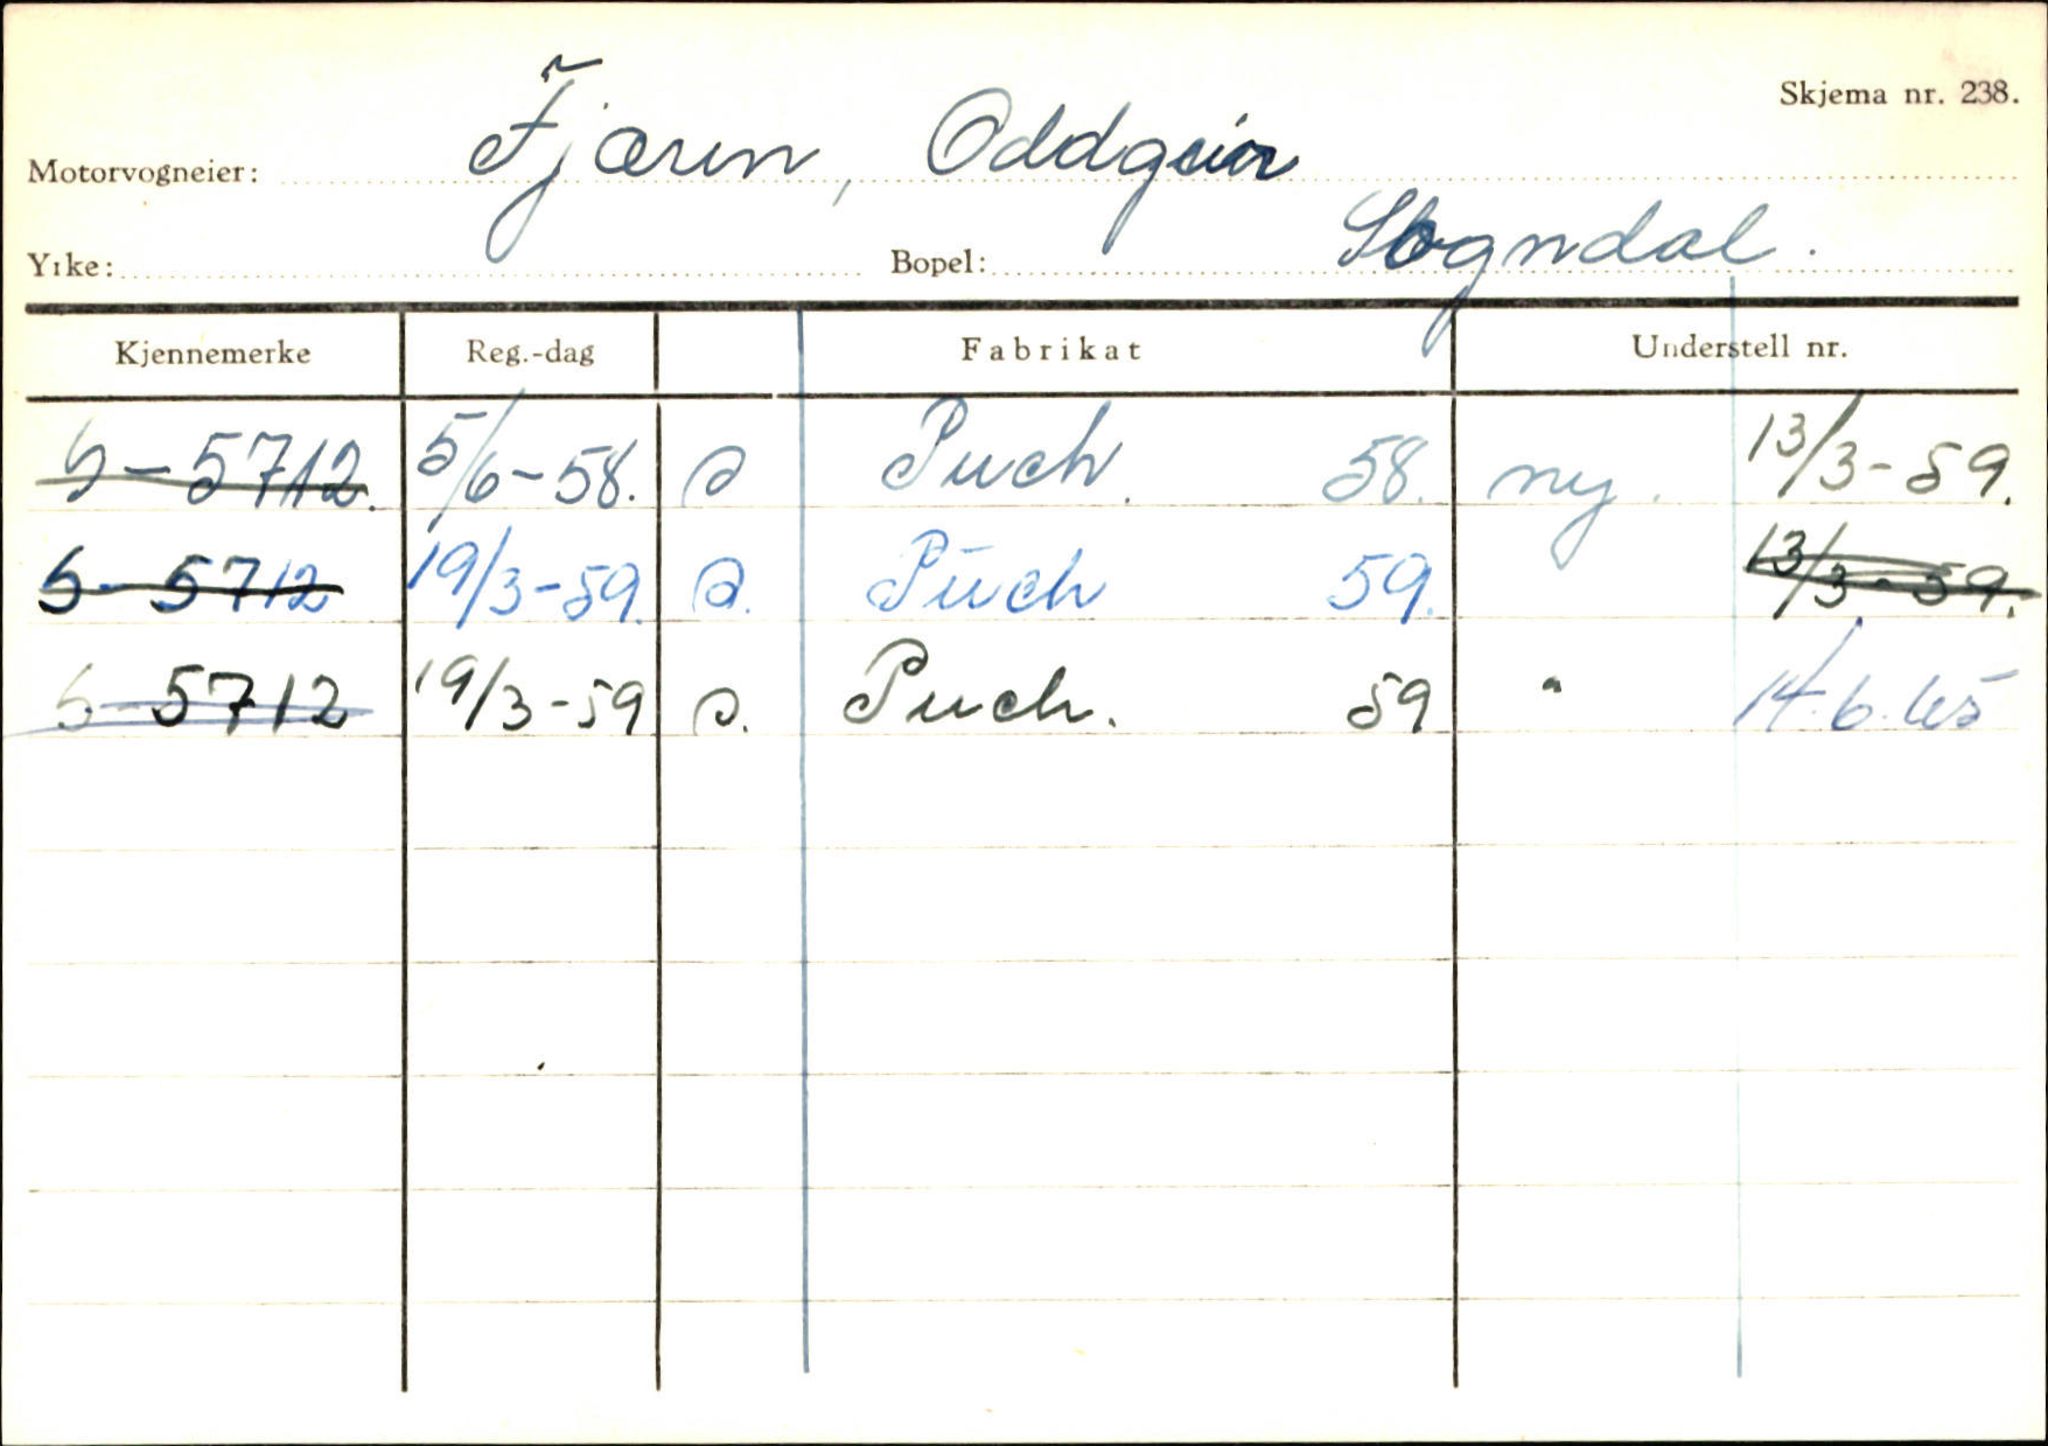 Skjema nr. 238.
Motorvogneier: Fjæren, Oddgeir
Yrke: Bopel: Sogndal.
Kjennemerke Reg.-dag Fabrikat Understell nr.
S-5712. 5/6-58. Puch. 58. ny. 13/3-59.
S-5712 19/3-59. Puch 59. 13/3-59.
S-5712 19/3-59 Puch. 59 " 14.6.65